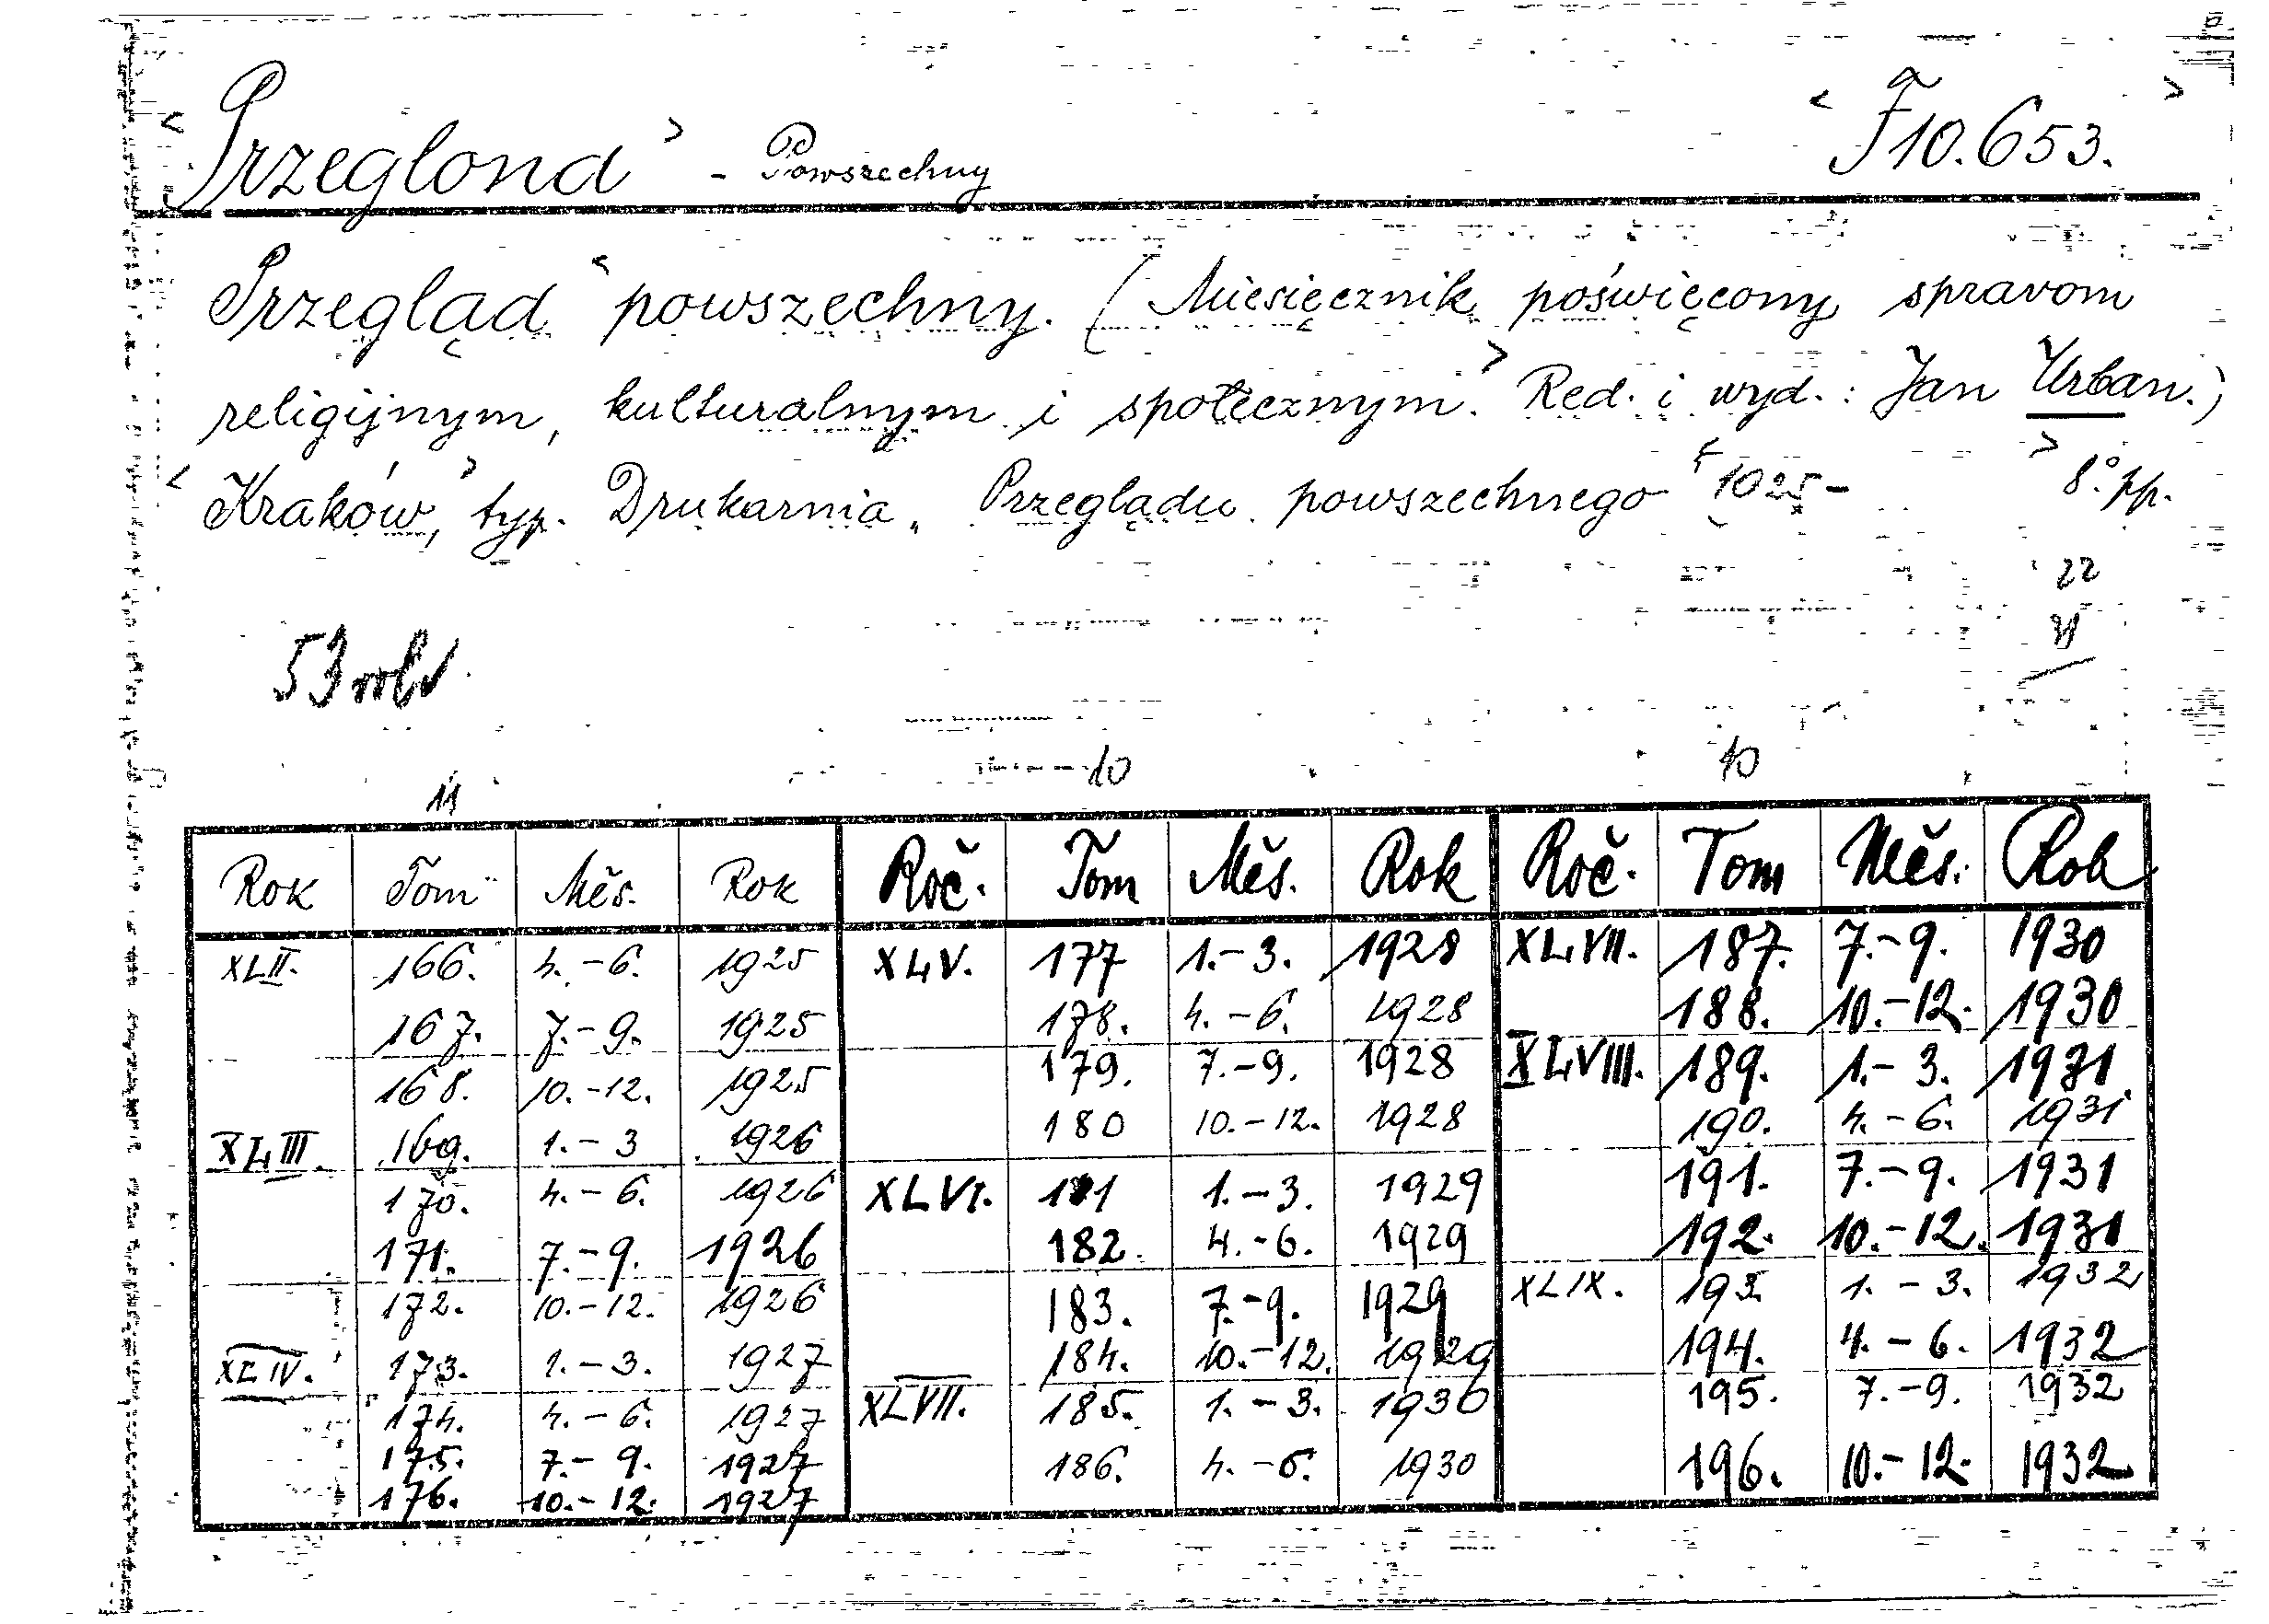 < Przeglond > - Powszechny < F10.653. >
Przegląd < powszechny. (Miesięcznik poświęcony spravom
religijnym, kulturalnym i społecznym. > Red. i wyd.: Jan Urban.)
< Kraków, > typ. Drukarnia Przeglądu powszechnego 1925- > 8° pp.
22
53 vol
11 10 10
Rok Tom Měs. Rok Roč. Tom Měs. Rok Roč. Tom Měs. Rok
XLII. 166. 4.-6. 1925 XLV. 177 1.-3. 1928 XLVII. 187. 7.-9. 1930
167. 7.-9. 1925 178. 4.-6. 1928 188. 10.-12. 1930
168. 10.-12. 1925 179. 7.-9. 1928 XLVIII. 189. 1.-3. 1931
XLIII. 169. 1.-3 1926 180 10.-12. 1928 190. 4.-6. 1931
170. 4.-6. 1926 XLVI. 181 1.-3. 1929 191. 7.-9. 1931
171. 7.-9. 1926 182. 4.-6. 1929 192. 10.-12. 1931
172. 10.-12. 1926 183. 7.-9. 1929 XLIX. 193. 1.-3. 1932
XLIV. 173. 1.-3. 1927 184. 10.-12. 1929 194. 4.-6. 1932
174. 4.-6. 1927 XLVII. 185. 1.-3. 1930 195. 7.-9. 1932
175. 7.-9. 1927 186. 4.-6. 1930 196. 10.-12. 1932
176. 10.-12. 1927